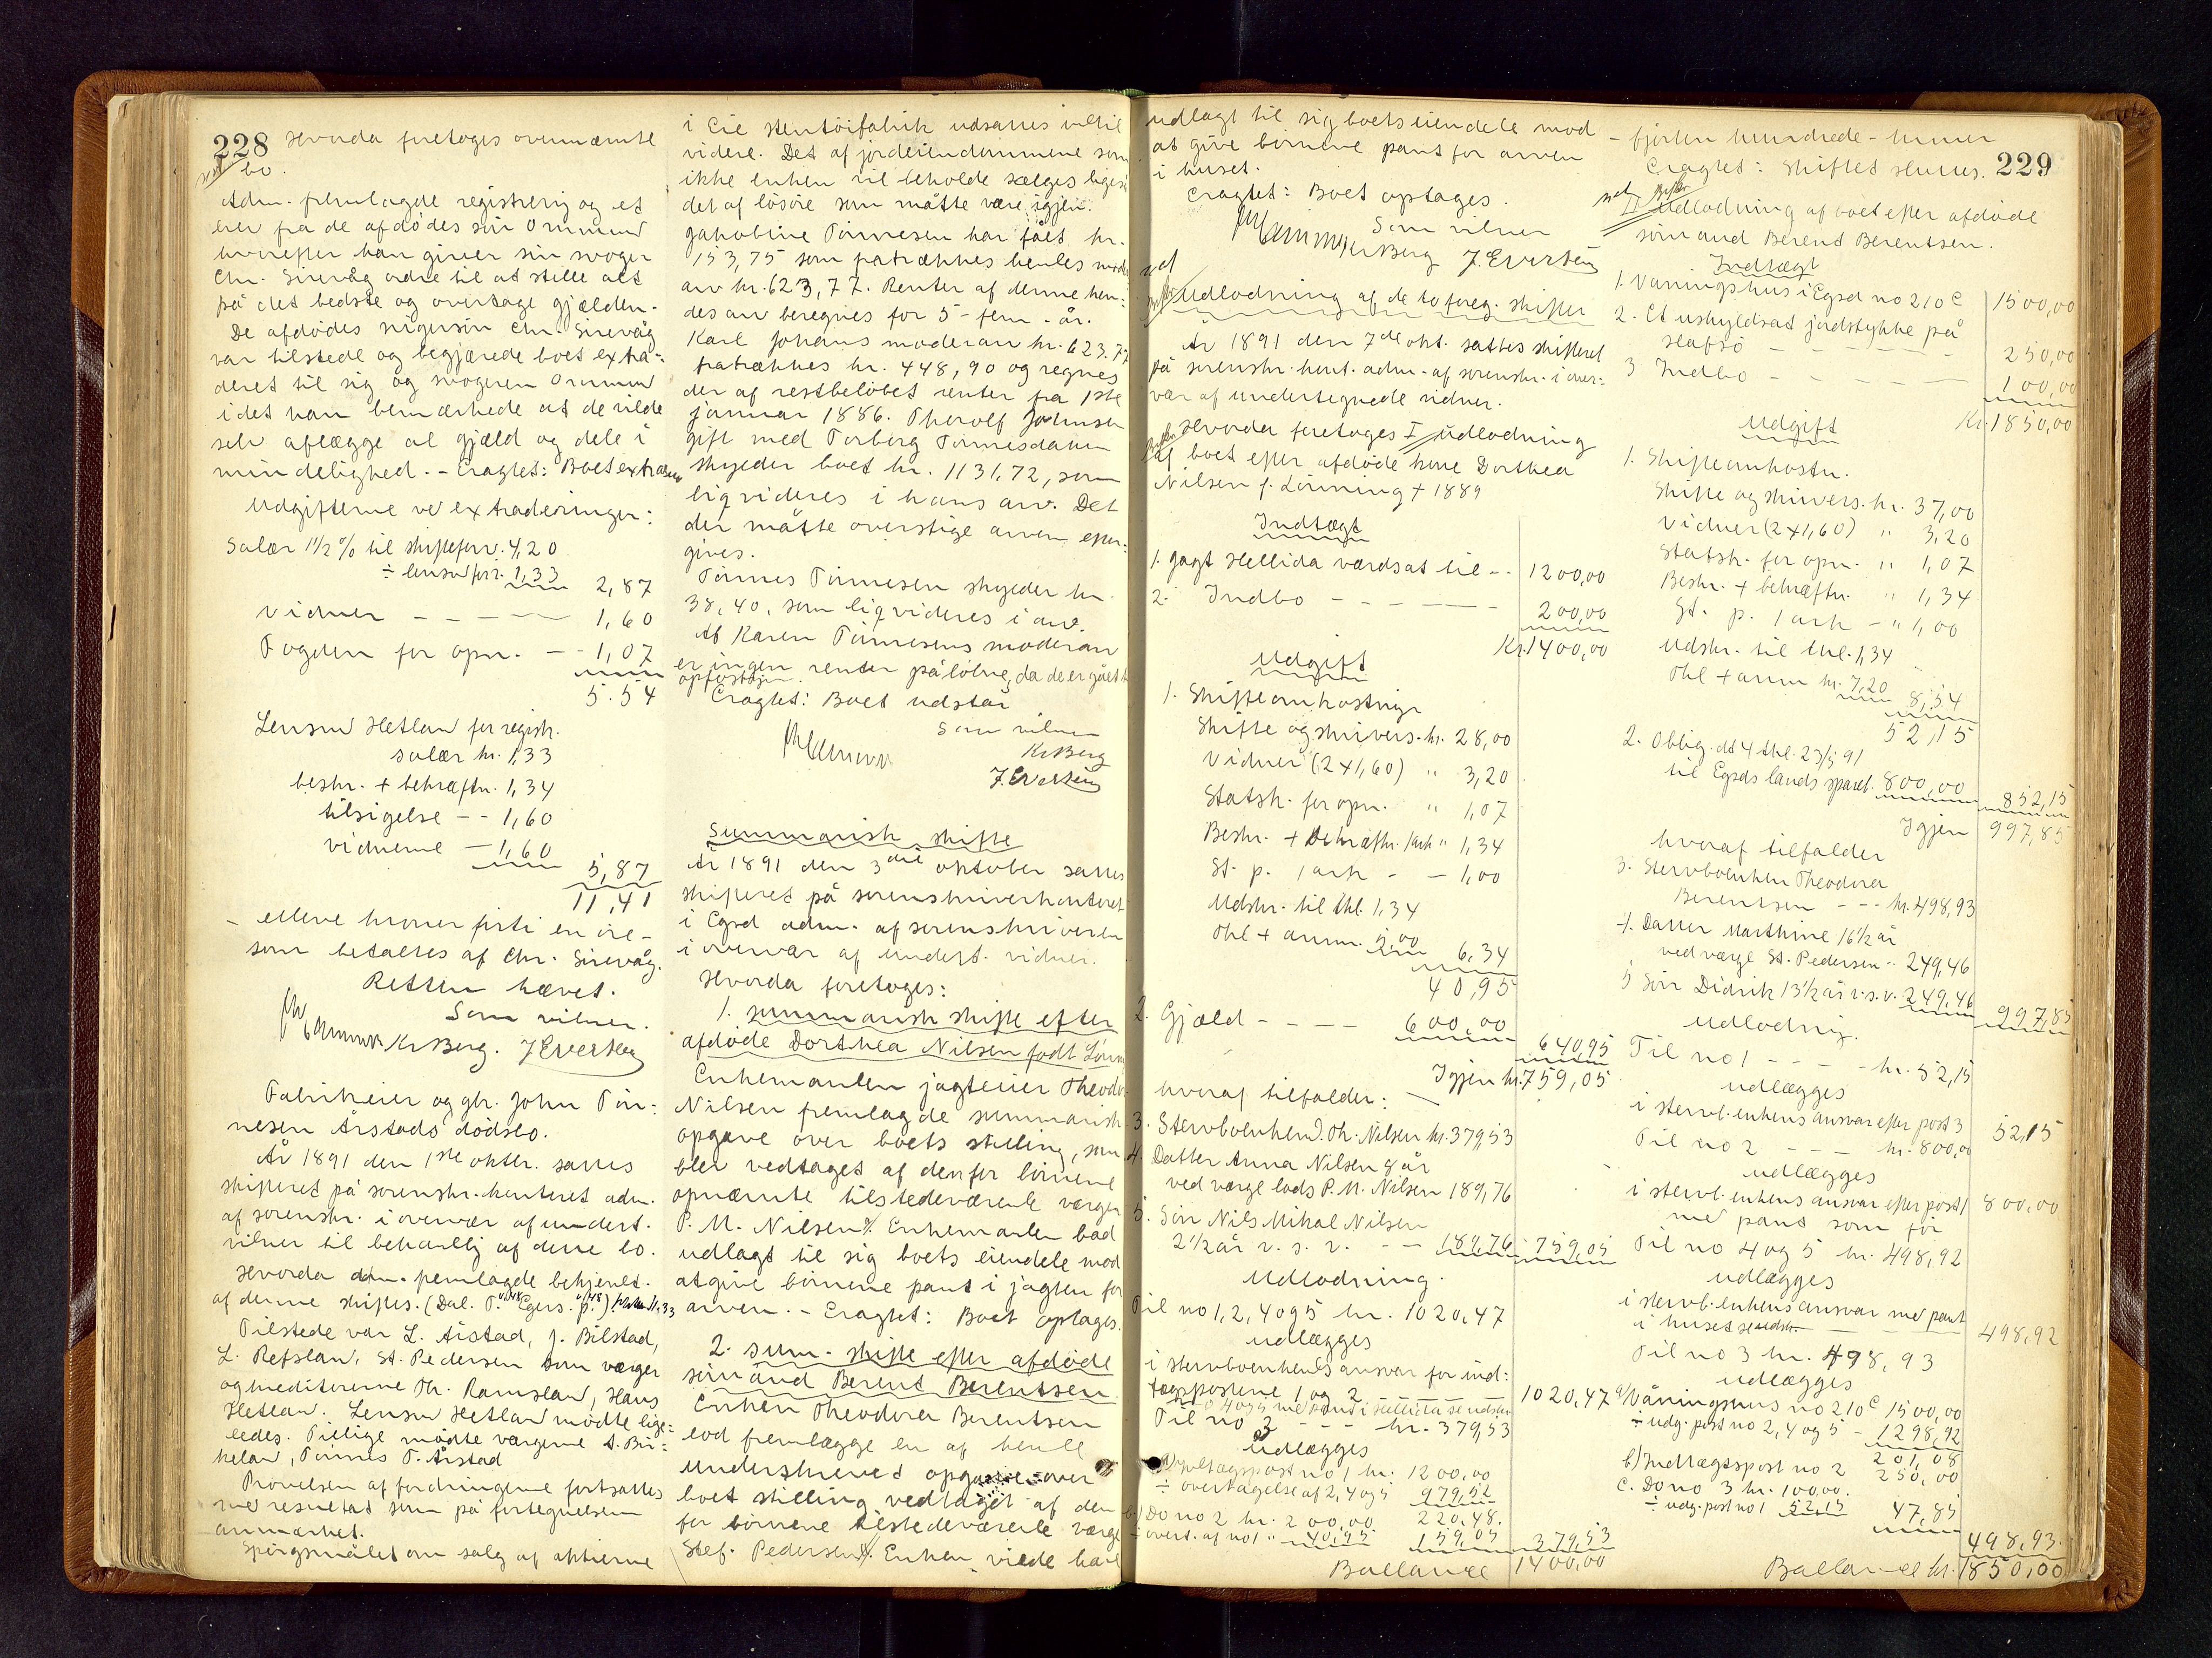 228 Hvorda foretoges ovennævnte
bo.
Adm. fremlagde registrering og et
brev fra de afdødes søn Ommund
hvorefter han giver sin svoger
Chr. Sirevåg ordre til at stille alt
på det bedste og overtage gjælden.
De afdødes svigersøn Chr. Sirevåg
var tilstede og begjærede boet extra-
deret til sig og svogeren Ommund
idet han bemærkede at de vilde
selv aflægge al gjæld og dele i
mindelighed. - Eragtet: Boet extraderes
Udgifterne ved extraderingen:
Salær 1½ % til skifteforv. 4,20
÷ lensmforr. 1,33 2,87
Vidner - - - - 1,60
Fogden for opn. - - 1,07
5.54
Lensm Hetland for registr.
salær kr. 1,33
beskr. + bekræftn. 1,34
tilsigelse - - 1,60
vidnerne - 1,60
5,87
11,41
- elleve kroner firti en öre -
som betaltes af Chr. Sirevåg.
Retten hævet.
Som vidner.
Kr Berg. J Evertsen
Fabrikeier og gbr. John Tön-
nesen Årstads dödsbo.
År 1891 den 1ste oktbr. sattes
skifteret på sorenskr. kontoret adm.
af sorenskr. i overvær af undert.
vidner til behandlig af dette bo.
Hvorda adm. fremlagde bekjendt.
af denne skiftes. (Dal. T. Egers. p.)
Tilstede var L. Årstad, J. Bilstad,
L. Refsland, St. Pedersen som værger
og kreditorerne Th. Ramsland, Hans
Hetland. Lensm Hetland mødte lige-
ledes. Tillige mødte værgerne T. Bir-
keland, Tönnes T. Årstad
Prövelsen af fordringerne fortsattes
med resultat som på fortegnelsen
anmærket.
Spörgsmålet om salg af aktierne
i Cie stentöifabrik udsattes indtil
videre. Det af jordeiendommene som
ikke enken vil beholde sælges ligeså
det af lösöre som måtte være igjen.
Jakobine Tönnesen har fået kr.
153,75 som fratrækkes hendes mödr
arv kr. 623,77. Renter af denne hen-
des arv beregnes for 5 - fem - år.
Karl Johans moderarv kr. 623.77
fratrækkes kr. 448,90 og regnes
der af restbelöbet renter fra 1ste
januar 1886. Thorolf Johnsen
gift med Torborg Tönnesdatter
skylder boet kr. 1131,72, som
liqvideres i hans arv. Det
der måtte overstige arven efter-
gives.
Tönnes Tönnesen skylder kr.
38,40, som liqvideres i arv.
Af Karen Tönnesens moderarv
er ingen renter påløbne, da de er gået t
opfostrin.
Eragtet: Boet udstår
Som vidner
Kr Berg
J. Evertsen
Summarisk skifte
År 1891 den 3die oktober sattes
skifteret på sorenskriverkontoret
i Egsd adm. af sorenskriveren
i overvær af undert. vidner.
Hvorda foretoges:
1. summarisk skifte efter
afdöde Dorthea Nilsen födt Lönn
Enkemanden jagteier Theodor
Nilsen fremlagde summarisk
opgave over boets stilling, som
blev vedtaget af den for börnene
opnævnte tilstedeværende værge
P. M. Nilsen. Enkemanden bad
udlagt til sig boets eiendele mod
at give börnene pant i jagten for
arven. - Eragtet: Boet optages.
2. sum. skifte efter afdöde
sömand Berent Berentsen.
Enken Theodora Berentsen
lod fremlægge en af hende
underskrevet opgave over
boet stilling vedtaget af den
for börnene tilstedeværende værge
Stef. Pedersen. Enken vilde have
udlagt til sig boets eiendele mod
at give börnene pant for arven
i huset.
Eragtet: Boet optages.
Som vidner
Kr Berg J. Evertsen
Udlodning af de to foreg. skifter
År 1891 den 7de okt. sattes skifteret
på sorenskr. kont. adm. af sorenskr. i over-
vær af undertegnede vidner.
Hvorda foretoges I udlodning
af boet efter afdöde kone Dorthea
Nilsen f. Lönning † 1889
Indtægt
1. Jagt Hellida værdsat til - - 1200,00
2. Indbo - - - - - - 200,00
Kr. 1400,00
Udgift
1. Skifteomkostnige
Skifte og skrivers. kr. 28,00
Vidner (2x1,60) " 3,20
Statsk. for opn. " 1,07
Beskr. + bekræftn. 1 ark " 1,34
St. p. 1 ark - - 1,00
Udskr. til thl. 1,34
thl + anm. 5,00 6,34
40,95
2. Gjæld - - - - 600,00
640,95
Igjen kr. 759,05
hvoraf tilfalder:
3. Stervboenkem. Th. Nilsen kr. 379,53
4. Datter Anna Nilsen 8 år
ved værge lods P. M. Nilsen 189,76
5. Sön Nils Mikal Nilsen
2½ år v. s. v. - - 189,76 759,05
Udlodning.
Til no 1, 2, 4 og 5 kr. 1020,47
udlægges
i stervboenkems ansvar for ind-
tægtsposterne 1 og 2 - - - - - 1020,47
Til no 3 - - - kr. 379,53
udlægges
a) Indtægtspost no 1 kr. 1200,00
÷ overtagelse af 2, 4 og 5 979,52
220,48.
b) Do no 2 kr. 200,00
÷ overt. af no 1 " 40,95 159,05 379,53
Ballance 1400,00
- fjorten hundrede - kroner
Eragtet: Skiftet sluttes. 229
II Udlodning af boet efter afdöde
sömand Berent Berentsen.
Indtægt
1. Våningshus i Egsd no 210 c 1500,00
2. Et uskyldsat jordstykke på
Hafsö - - - - - - 250,00
3 Indbo - - - - - - 100,00
Kr. 1850,00
Udgift
1. Skifteomkostn.
Skifte og skrivers. kr. 37,00
Vidner (2x1,60) " 3,20
Statsk. for opn. " 1,07
Beskr. + bekræftn. " 1,34
St. p. 1 ark - " 1,00
Udskr. til thl. 1,34
thl + anm kr. 7,20 8,54
52,15
2. Oblig. dt 4 thl. 23/5 91
til Egsds lands spareb. 800,00 852,15
Igjen 997,85
hvoraf tilfalder
3. Stervboenken Theodora
Berentsen - - - kr. 498,93
4. Datter Marthine 16½ år
ved værge St. Pedersen - 249,46
5 Sön Didrik 13½ år v. s. v. 249,46 997,85
Udlodnig.
Til no 1 - - - kr. 52,15
udlægges
i stervb. enkens ansvar efter post 3 52,15
Til no 2 - - - kr. 800,00
udlægges
i stervb. enkens ansvar efter post 1 800,00
med pant som för
Til no 4 og 5 kr. 498,92
udlægges
i stervb. enkens ansvar med pant
i huset se udskr. - - - - 498,92
Til no 3 kr. 498,93
udlægges
a) Våningshus no 210 c 1500,00
÷ udg. post no 2, 4 og 5 - 1298,92
201,08
b) Indtægtspost no 2 250,00
c. Do no 3 kr. 100,00.
÷ udg. post no 1 52,15 47,85
498,93.
Ballance kr. 1850,00